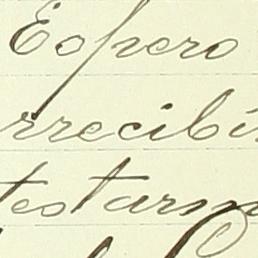 Espero
rrecibi
testarm